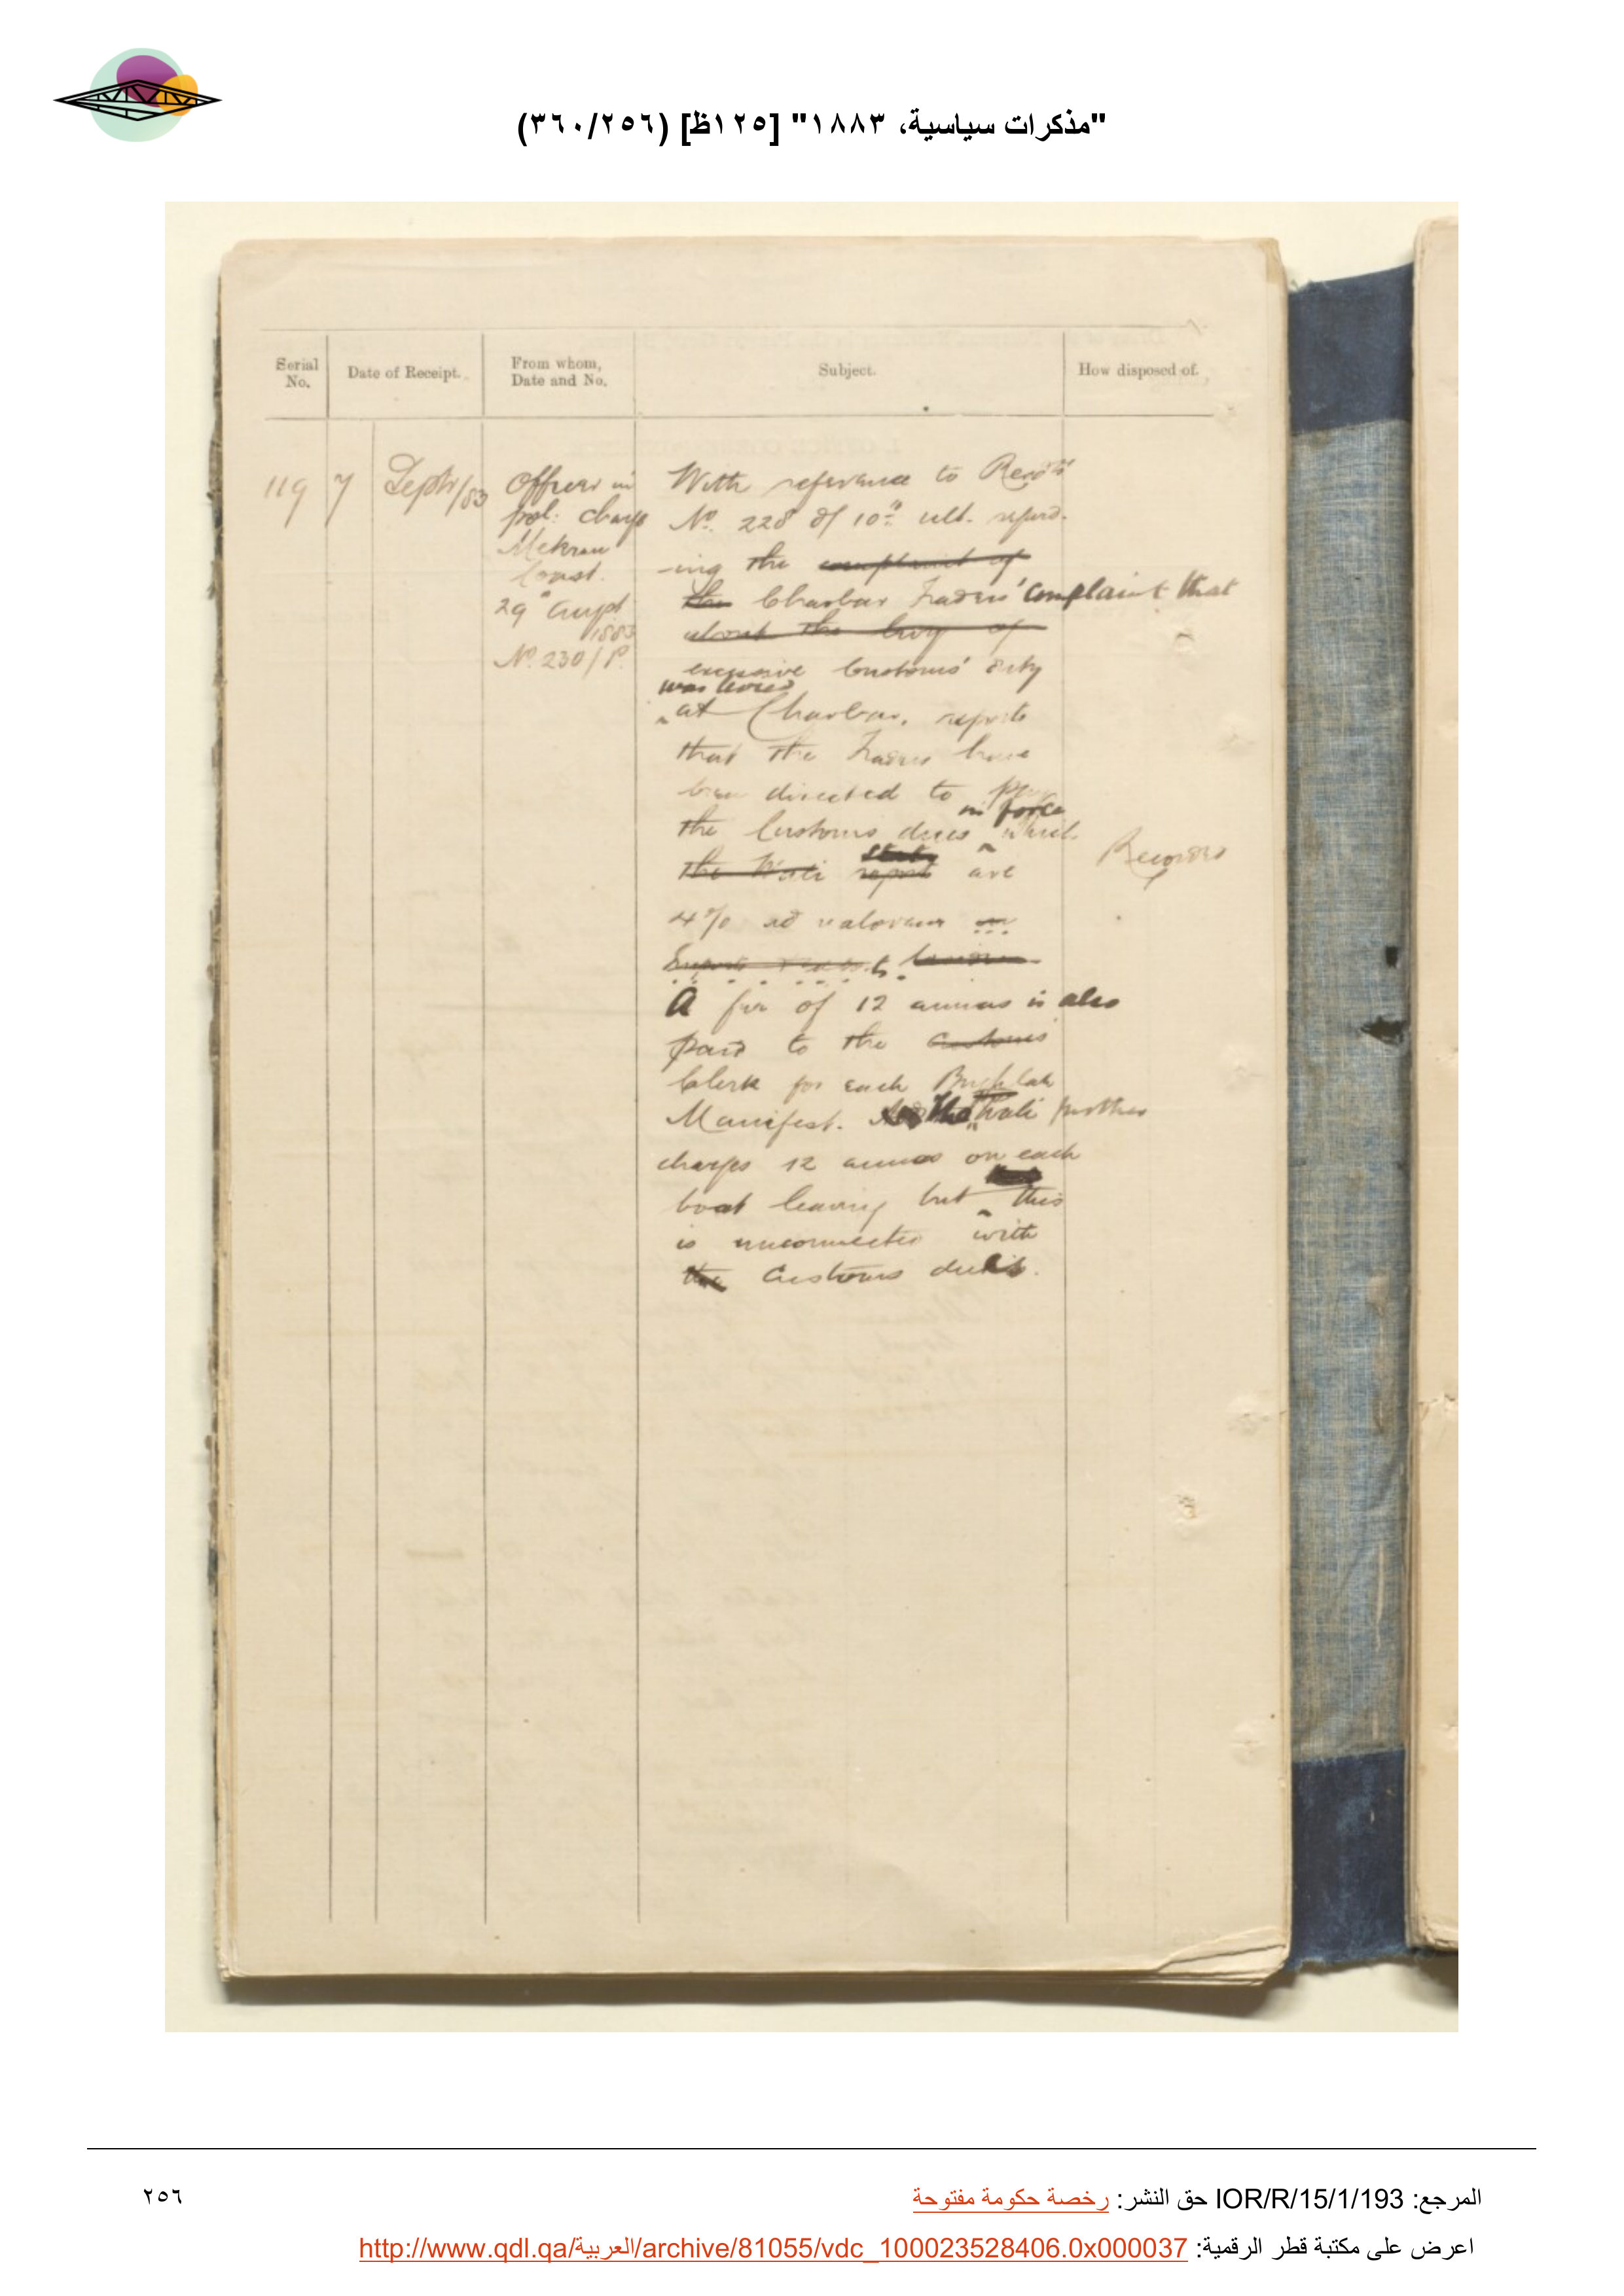 "مذكرات سياسية، ١٨٨٣" [١٢٥ظ] (٣٦٠/٢٥٦)
Serial No.
Date of Receipt.
From whom, Date and No.
Subject.
How disposed of.
119
7
Septr/83
Officer in
pol: charge
Mekran
Coast.
29th August
1883
No. 230/P.
With reference to
No. 228 of 10th ult. regard-
-ing the complaint of
the Charbar Traders' complaint that
about the levy of
excessive Customs' duty
was levied
at Charbar, reports
that the Traders have
been directed to pay
in force
the Customs dues which
state
the Wali report are
4% ad valorem on
A fee of 12 annas is also
paid to the Customs
Clerk for each Bughlah
Manifest. The Wali further
charges 12 annas on each
boat leaving but this
is unconnected with
the Customs dues.
Recorded
المرجع: IOR/R/15/1/193 حق النشر: رخصة حكومة مفتوحة
٢٥٦
اعرض على مكتبة قطر الرقمية: http://www.qdl.qa/العربية/archive/81055/vdc_100023528406.0x000037